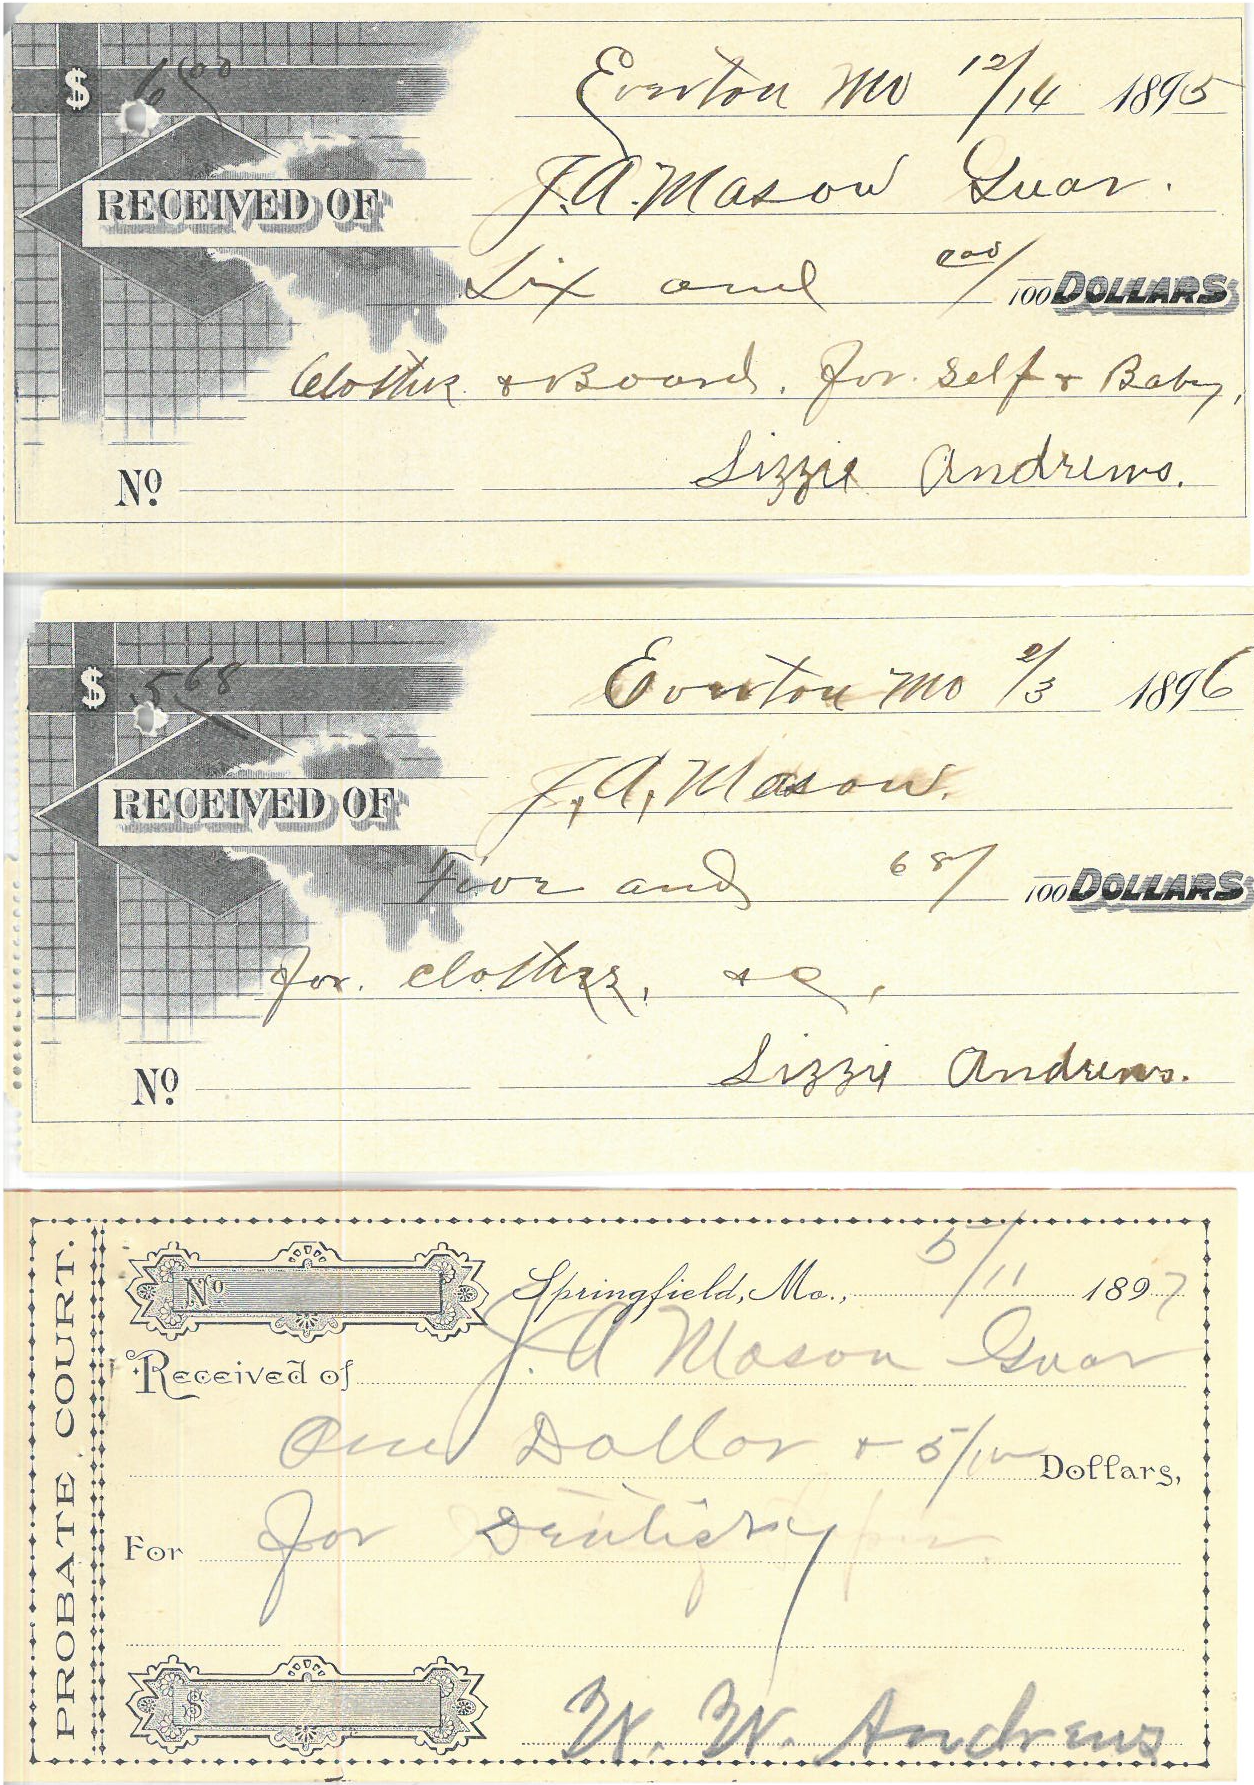 $ 6.00
Everton Mo 12/14 1895
RECEIVED OF J. A. Mason Guar.
Six and 000/100 DOLLARS
Clothes & Board. for. Self & Baby,
Lizzie Andrews.
No.
$ 5.68
Everton Mo 2/3 1896
RECEIVED OF J, A, Mason.
Five and 68/100 DOLLARS
for. Clothes, &c,
Lizzie Andrews.
No.
PROBATE COURT.
No Springfield, Mo., 5/11 1897
Received of J. A Mason Guar
One Dollar & 5/10 Dollars,
For for Dentistry
$
W. W. Andrews